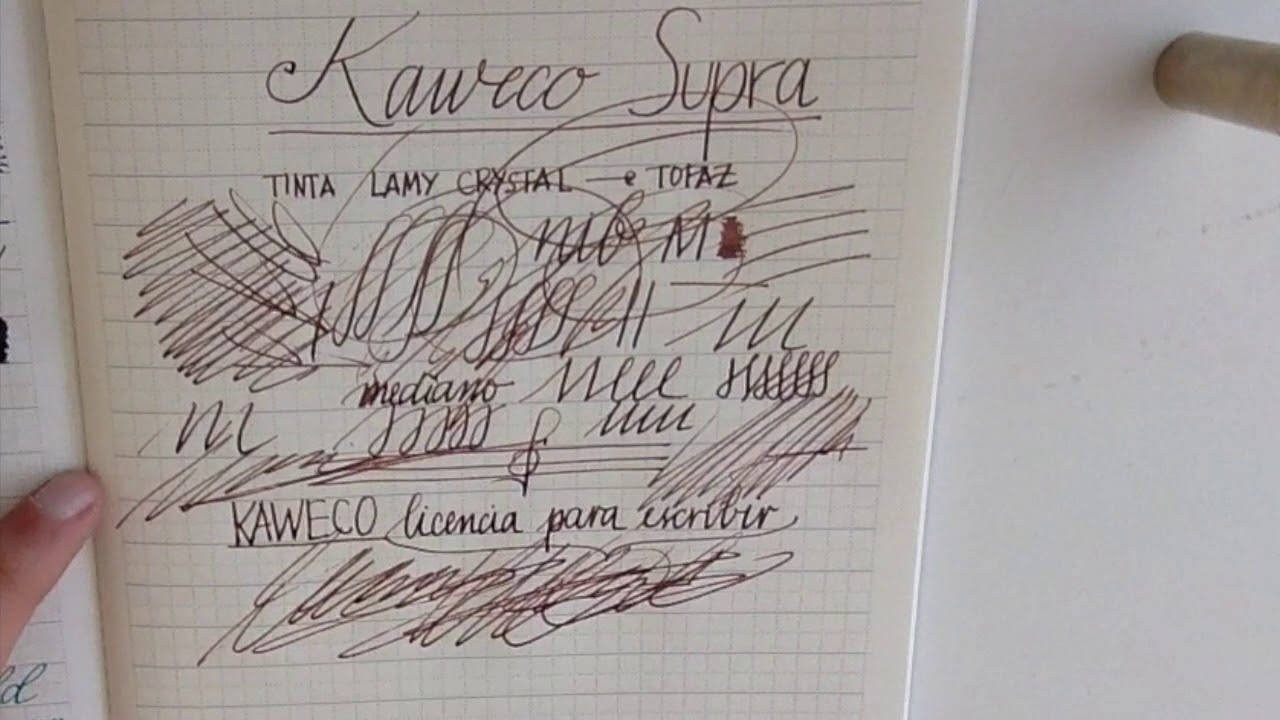 Kaweco Supra
TINTA LAMY CRYSTAL — TOPAZ
M
mediano
KAWECO licencia para escribir